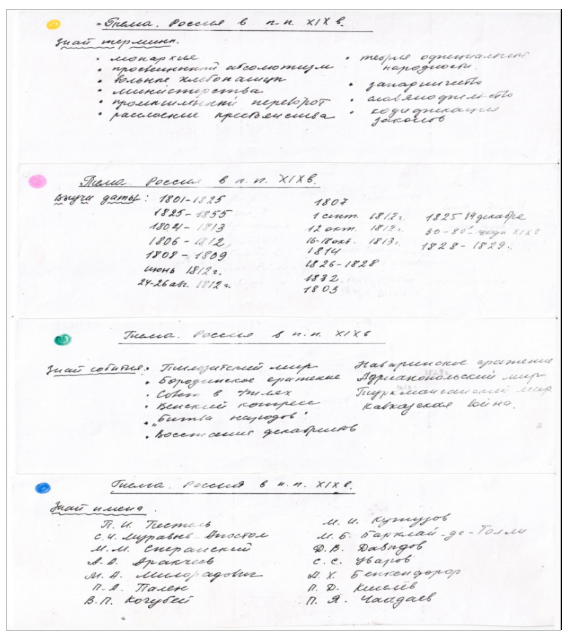 Тема. Россия в п.п. XIX в.
Знай термины.
• монархия
• просвещенный абсолютизм
• вольные хлебопашцы
• министерства
• промышленный переворот
• расслоение крестьянства
• теория официальной народности
• западничество
• славянофильство
• кодификация законов
Тема. Россия в п.п. XIX в.
Выучи даты: 1801-1825
1825-1855
1804-1813
1806-1812
1808-1809
июнь 1812г.
24-26 авг. 1812г.
1807
1 сент. 1812г.
12 окт. 1812г.
16-18 окт. 1813г.
1814
1826-1828
1832
1803
1825 14 декабря
30-80е года XIX в
1828-1829г.
Тема. Россия в п.п. XIX в
Знай события: • Тильзитский мир
• Бородинское сражение
• Совет в Филях
• Венский конгресс
• "Битва народов"
• Восстание декабристов
Наваринское сражение
Адрианопольский мир
Туркманчайский мир
Кавказская война.
Тема. Россия в п.п. XIX в.
Знай имена.
П.И. Пестель
С.И. Муравьев-Апостол
М.М. Сперанский
А.А. Аракчеев
М.А. Милорадович
П.А. Пален
В.П. Кочубей
М.И. Кутузов
М.Б. Барклай-де-Толли
Д.В. Давыдов
С.С. Уваров
А.Х. Бенкендорф
П.Д. Киселёв
П.Я. Чаадаев